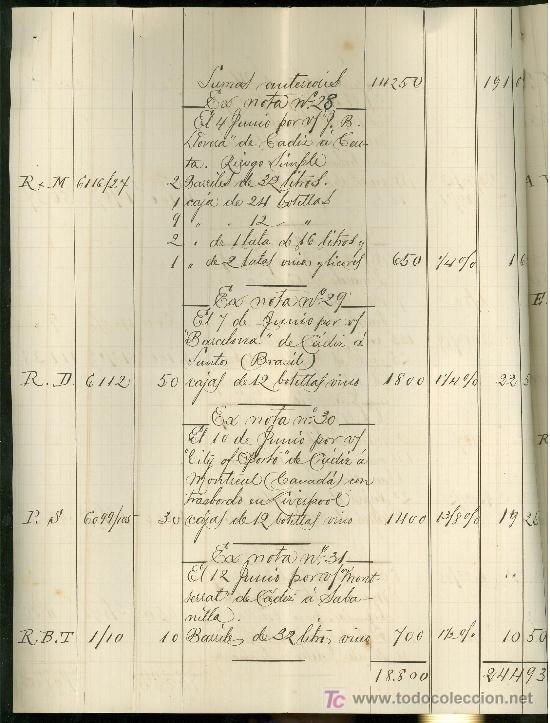 Sumas anteriores 14250 191
Ex nota nº 28
El 4 Junio por v/ "J. B.
Llovera" de Cadiz á Ceu-
ta. Riesgo Simple
R x M 6116/27 2 Barriles de 32 litros.
1 caja de 24 botellas
9 " " 12 " "
2 " de 1 lata de 16 litros y
1 " de 2 latas vinos y licores 650 1/4 % 1 6
Ex nota nº 29
El 7 de Junio por v/
"Barcelona" de Cádiz á
Santos (Brasil)
R. D. 6112 50 cajas de 12 botellas vino 1800 1 1/4 % 22 5
Ex nota nº 30
El 10 de Junio por v/
"City of Oporto" de Cádiz á
Montreal (Canadá) con
trasbordo en Liverpool
P. S 6099/105 30 cajas de 12 botellas vino 1400 1 3/8 % 19 25
Ex nota nº 31
El 12 Junio por v/ "Mont-
serrat" de Cádiz á Saba-
nilla).
R. B. T 1/10 10 Barriles de 32 litros vino 700 1 1/2 % 10 50
18.800 244 93
TC www.todocoleccion.net